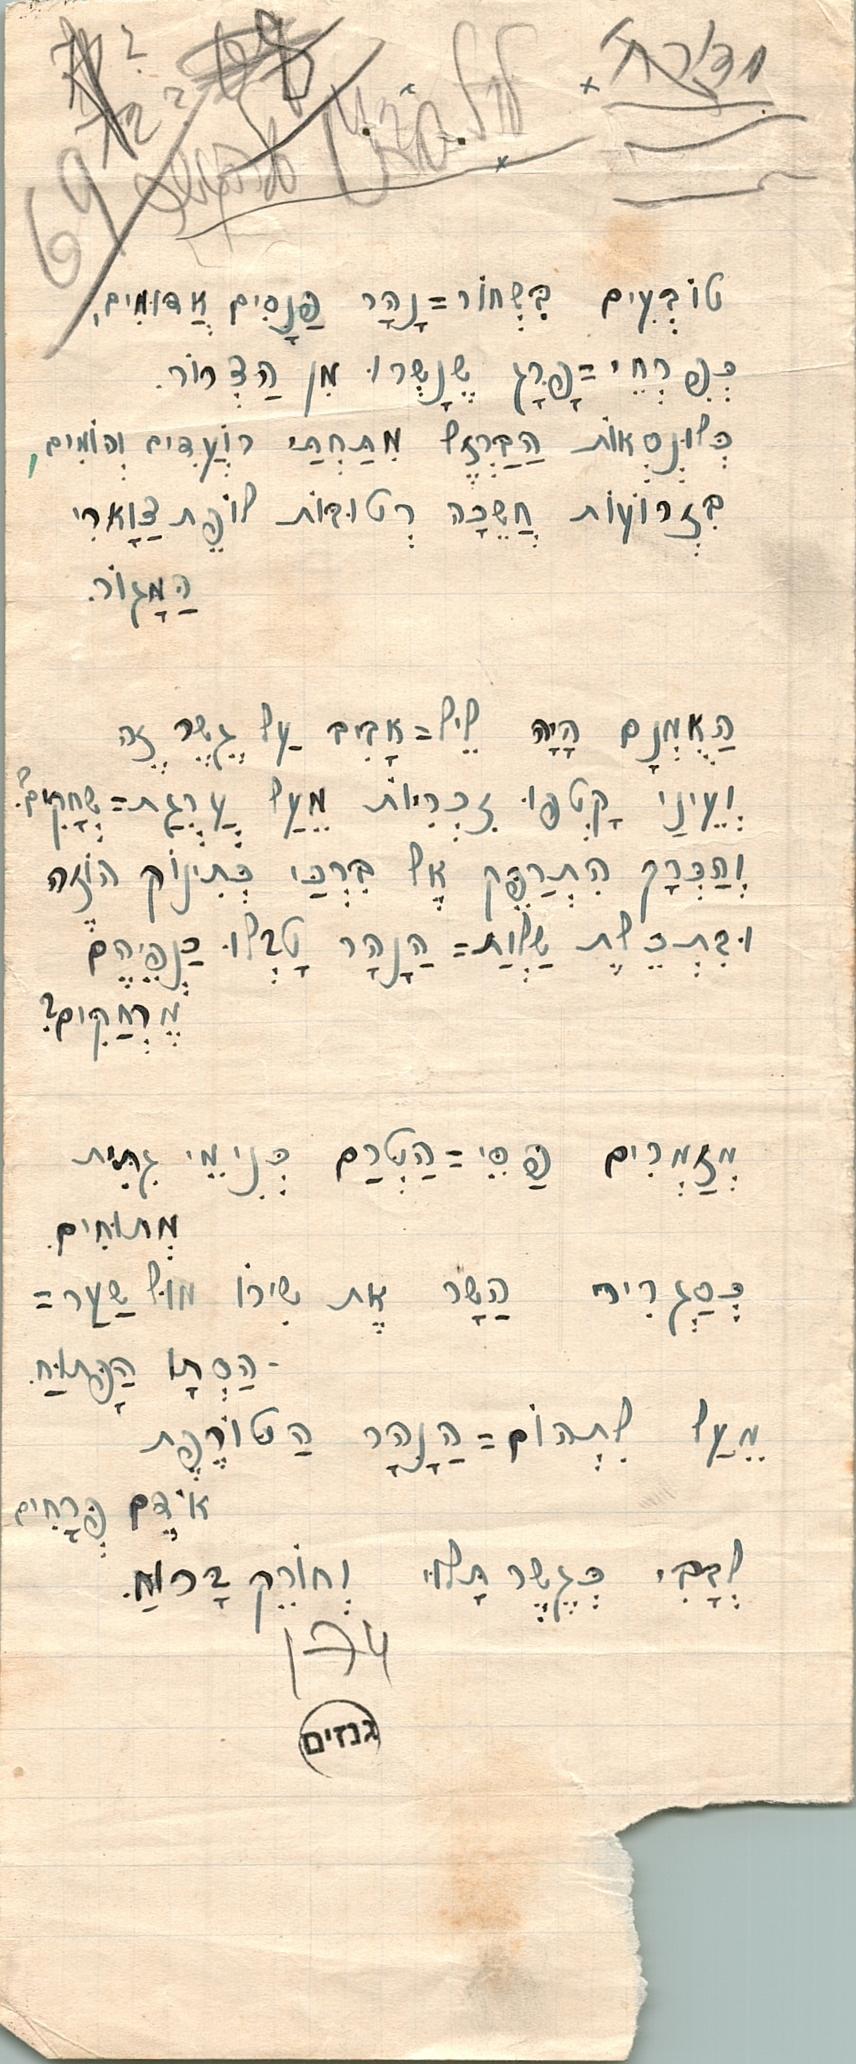 טוֹבְעִים בִּשְׁחוֹר=נָהָר פַּנָסִים אֲדוּמִים,
כְּפִרְחֵי=פָּרָג שֶׁנָשְׁרוּ מִן הַצְרוֹר.
כְּלוּנְסְאוֹת הַבַּרְזֶל מִתַּחְתַּי רוֹעֲדִים וְהוֹמִים,
בִּזְרוֹעוֹת חֲשֵׁכָה רְטוּבּוֹת לוֹפֵת צַוָארִי
הַמָגוֹר.
הַאֻמְנָם הָיָה לֵיל=אָבִיב עַל גֶשֶׁר זֶה
וְעֵינַי קָטְפוּ זִכְרִיוֹת מֵעַל עֲרֻגַת=שְׁחָקִים?
וְהַכְּרָךְ הִתְרַפֵּק אֶל בִּרְכַּי כְּתִינוֹק הוֹזֶה
וּבִתְכֵלֶת שַׁלְוַת=הַנָהָר טָבְלוּ כַּנְפֵיהֶם
מֶרְחַקִים?
מְזַמְרִים פַּסֵי=הַטְרַם כְּנִימֵי גִתִּית
מְתוּחִים.
כְּסַגְרִיר הַשָׁר אֶת שִׁירוֹ מוּל שַׁעַר=
-הַסְתָו הַפָּתוּחַ.
מֵעַל לִתְהוֹם=הַנָהָר הַטוֹרֶפֶת
אוֹדֶם פְּרָחִים
לְבָבִי כְּגֶשֶׁר תָּלוּי וְחוֹרֵק בָּרוּחַ.
גנזים